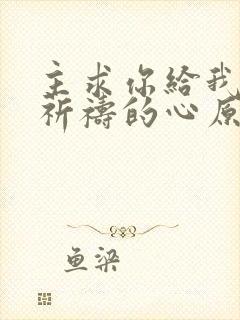 主求你给我
祈祷的心原
鱼梁